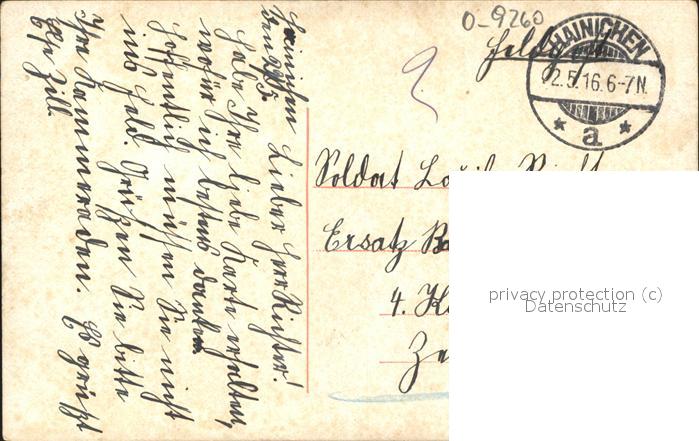 O-9260
Feldpost
HAINICHEN
2.5.16. 6-7N.
* a *
Soldat
Ersatz
4. K
privacy protection (c)
Datenschutz
Hainichen
den 2/5.
Lieber Herr Richter!
Habe Ihre liebe Karte erhalten,
wofür ich bestens danke.
Hoffentlich müssen Sie nicht
ins Feld. Grüßen Sie bitte
Ihre Kammeraden. Es grüßt